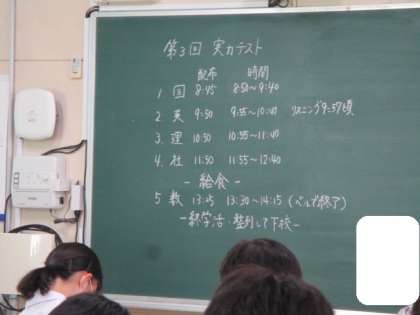 第3回 実力テスト
配布 時間
1. 国 8:45 8:50〜9:40
2. 英 9:50 9:55〜10:45 リスニング9:57頃
3. 理 10:50 10:55〜11:40
4. 社 11:50 11:55〜12:40
- 給食 -
5 数 13:25 13:30〜14:15 (ベルで終了)
- 終学活・整列して下校 -